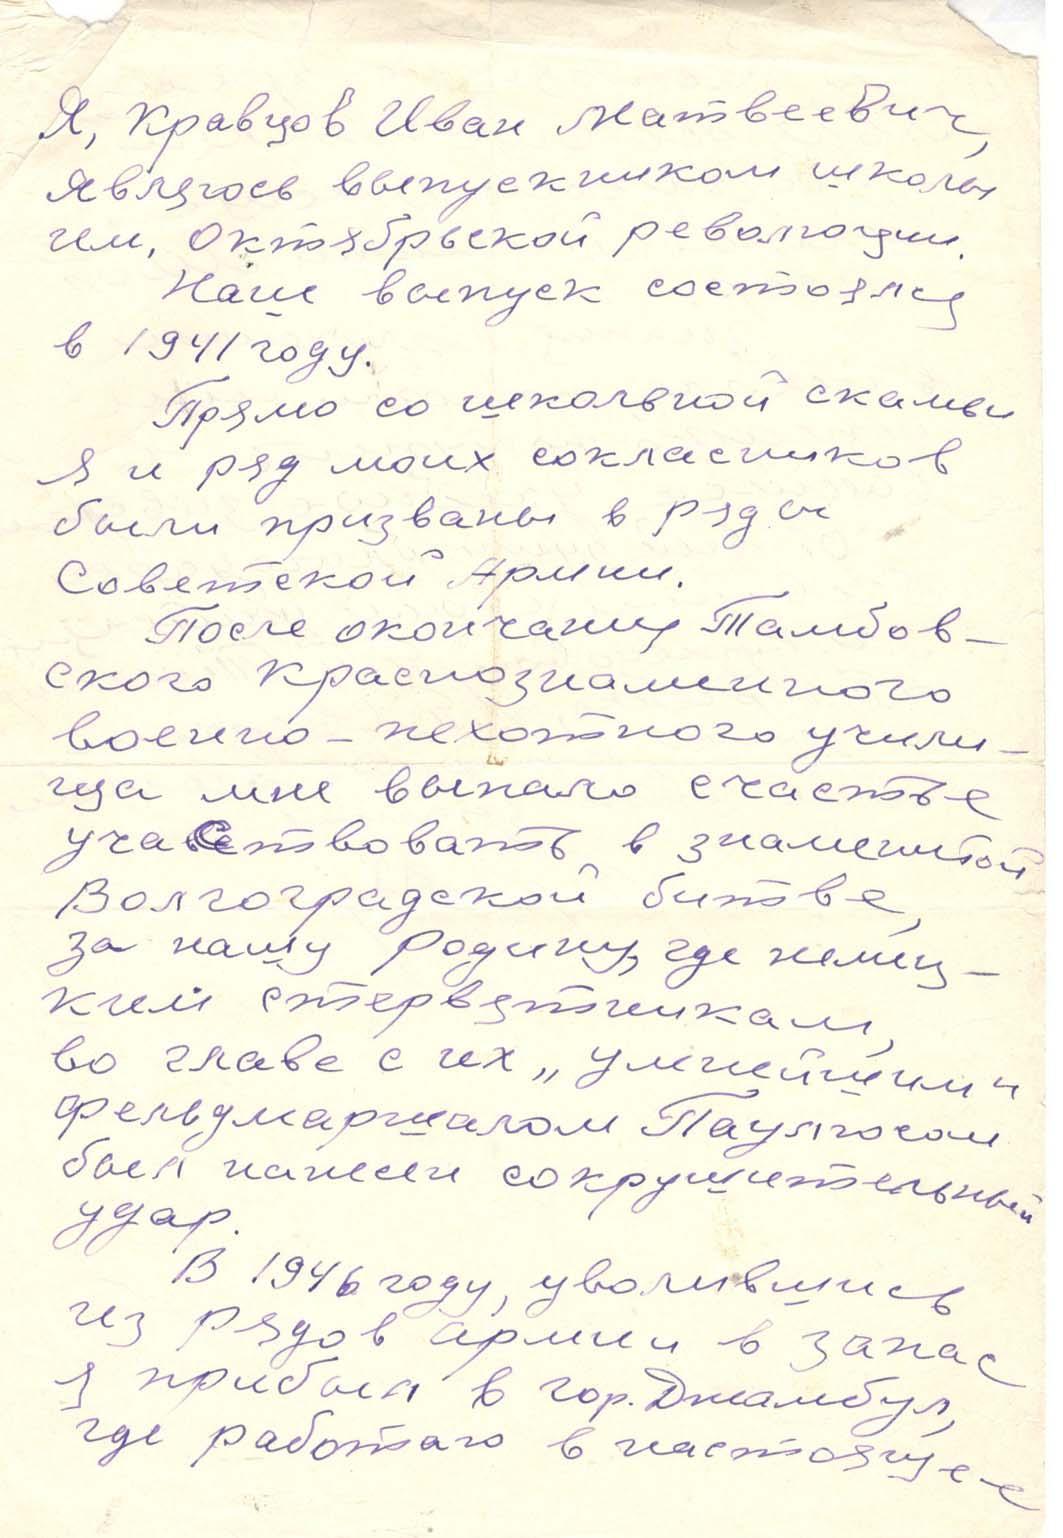 Я, Кравцов Иван Матвеевич,
являюсь выпускником школы
им, Октябрьской революции.
Наш выпуск состоялся
в 1941 году.
Прямо со школьной скамьи
я и ряд моих сокласников
были призваны в ряды
Советской Армии.
После окончания Тамбов-
ского Краснознаменного
военно-пехотного учили-
ща мне выпало счастье
участвовать в знаменитой
Волгоградской битве,
за нашу родину, где немец-
ким стервятникам,
во главе с их „умнейшим"
фельдмаршалом Паулюсом
был нанесен сокрушительный
удар.
В 1946 году, уволившись
из рядов армии в запас
я прибыл в гор. Джамбул,
где работаю в настоящее